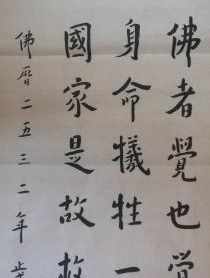 佛者覺也覺
身命犧牲一
國家是故救
佛曆二五三二年